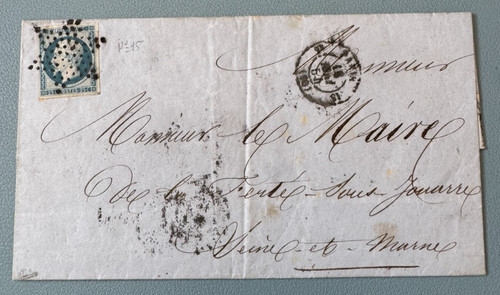 N° 15
Monsieur
Monsieur le Maire
de la Ferté-sous-Jouarre
Seine-et-Marne